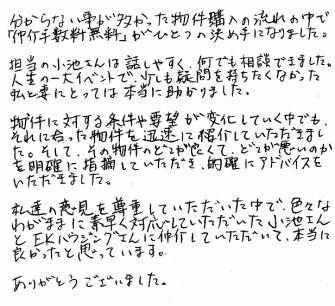 分からない事が多かった物件購入の流れの中で
「仲介手数料無料」がひとつの決め手になりました。
担当の小池さんは話しやすく、何でも相談できました。
人生の一大イベントで、少しも疑問を持ちたくなかった
私と妻にとっては本当に助かりました。
物件に対する条件や要望が変化していく中でも、
それに合った物件を迅速に紹介していただきまし
た。そして、その物件のどこが良くて、どこが悪いのか
を明確に指摘していただき、的確にアドバイスを
いただきました。
私達の意見を尊重していただいた中で、色々な
わがままに素早く対応していただいた小池さん
とEKハウジングさんに仲介していただいて、本当に
良かったと思っています。
ありがとうございました。